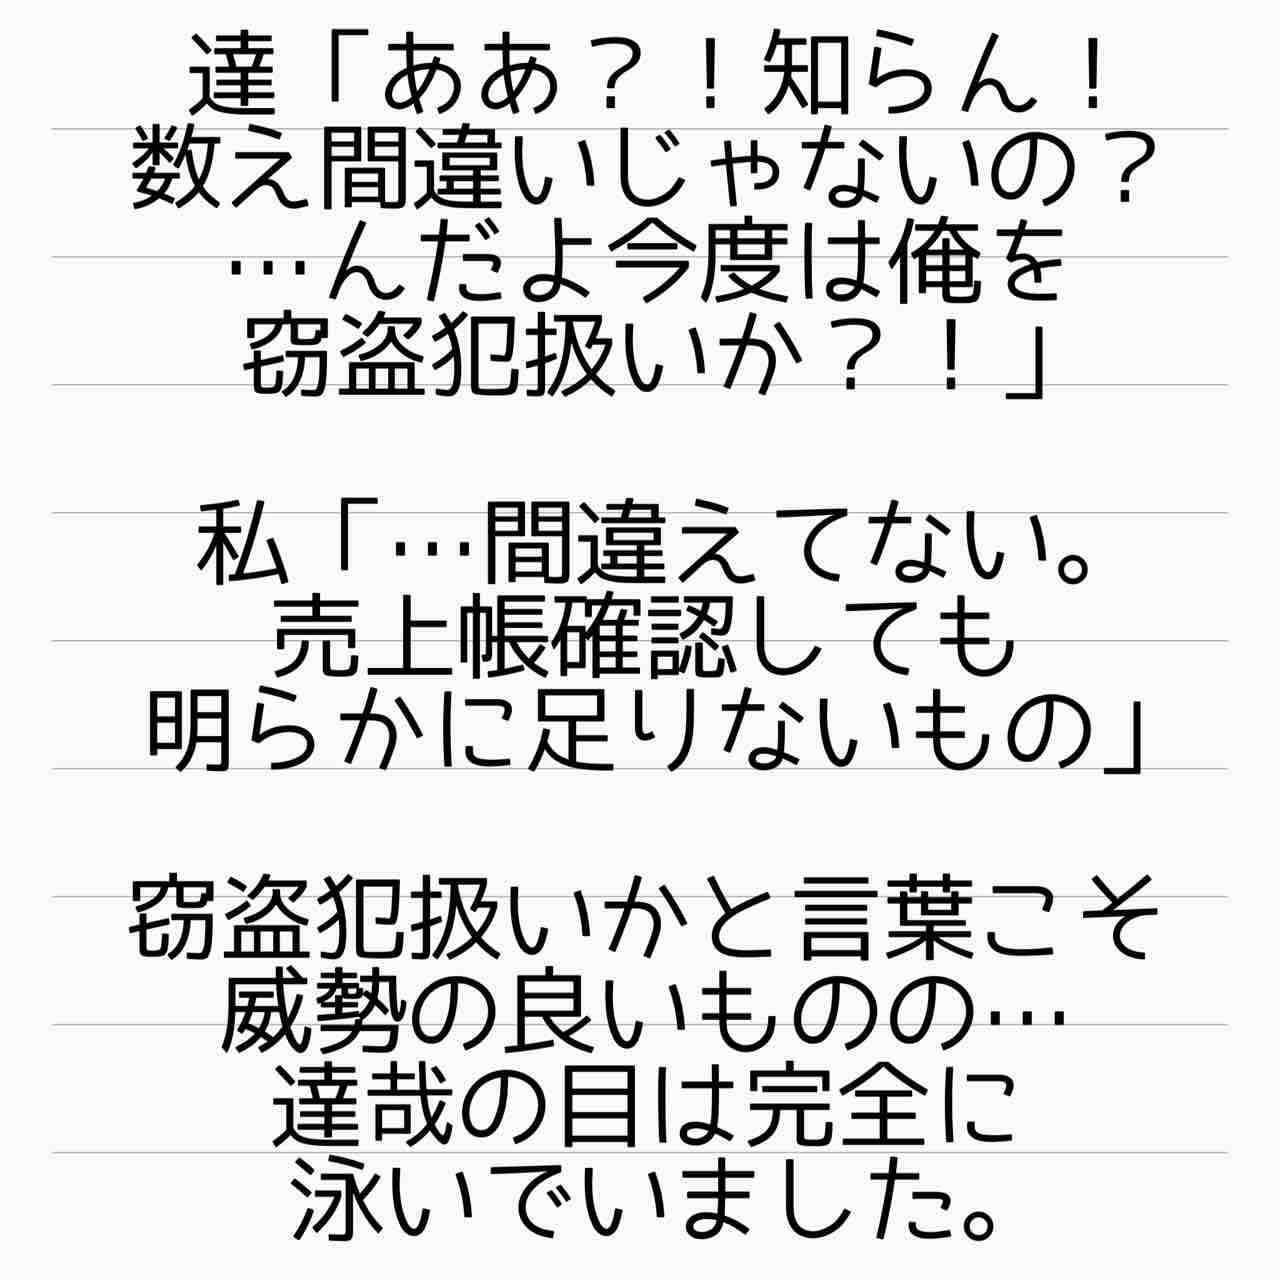 達「ああ？！知らん！
数え間違いじゃないの？
…んだよ今度は俺を
窃盗犯扱いか？！」
私「…間違えてない。
売上帳確認しても
明らかに足りないもの」
窃盗犯扱いかと言葉こそ
威勢の良いものの…
達哉の目は完全に
泳いでいました。